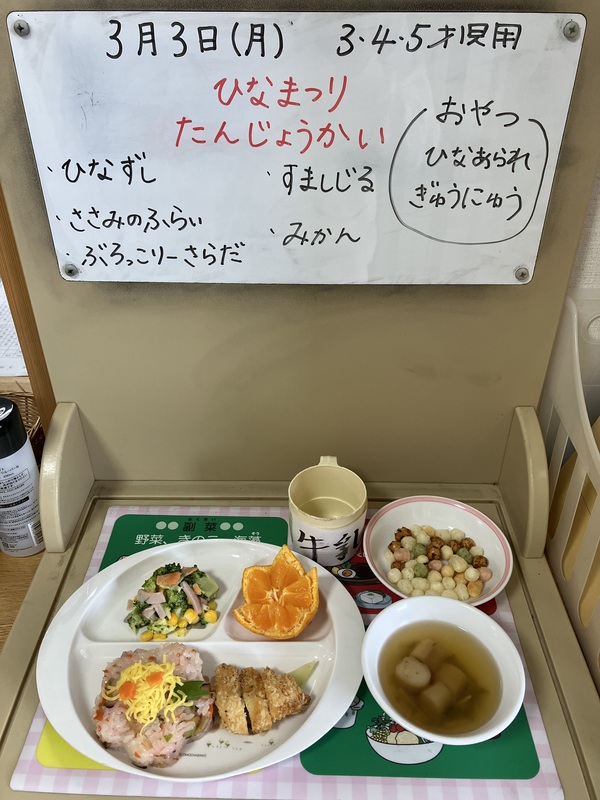 3月3日(月) 3・4・5才児用
ひなまつり
たんじょうかい
・ひなずし
・ささみのふらい
・ぶろっこりーさらだ
・すましじる
・みかん
おやつ
ひなあられ
ぎゅうにゅう
副菜
野菜、きのこ、海藻
牛乳